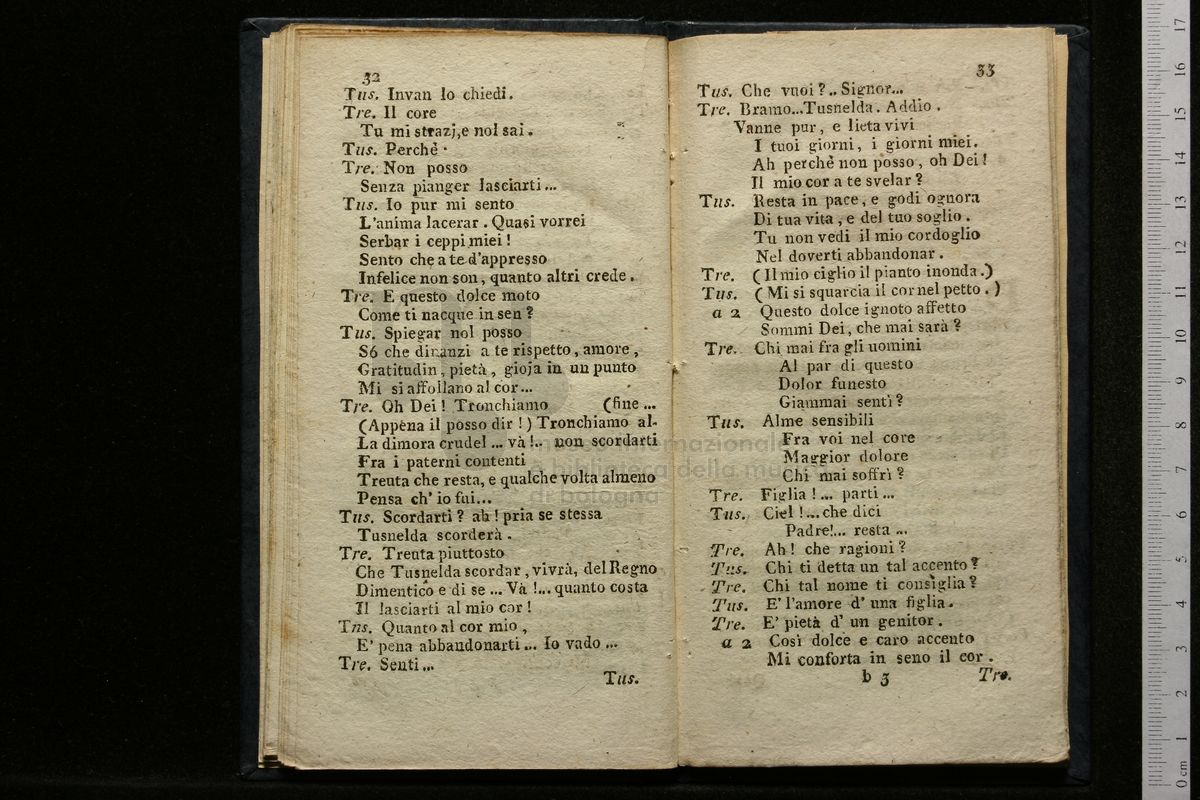 32
Tus. Invan lo chiedi.
Tre. Il core
Tu mi strazj, e nol sai.
Tus. Perchè.
Tre. Non posso
Senza pianger lasciarti...
Tus. Io pur mi sento
L'anima lacerar. Quasi vorrei
Serbar i ceppi miei!
Sento che a te d'appresso
Infelice non son, quanto altri crede.
Tre. E questo dolce moto
Come ti nacque in sen?
Tus. Spiegar nol posso
Só che dinanzi a te rispetto, amore,
Gratitudin, pietà, gioja in un punto
Mi si affollano al cor...
Tre. Oh Dei! Tronchiamo (fine...
(Appena il posso dir!) Tronchiamo al-
La dimora crudel... và!.. non scordarti
Fra i paterni contenti
Treuta che resta, e qualche volta almeno
Pensa ch' io fui...
Tus. Scordarti? ah! pria se stessa
Tusnelda scorderà.
Tre. Treuta piuttosto
Che Tusnelda scordar, vivrà, del Regno
Dimentico e di se... Và!... quanto costa
Il lasciarti al mio cor!
Tns. Quanto al cor mio,
E' pena abbandonarti... Io vado...
Tre. Senti...
Tus.
33
Tus. Che vuoi?.. Signor...
Tre. Bramo...Tusnelda. Addio.
Vanne pur, e lieta vivi
I tuoi giorni, i giorni miei.
Ah perchè non posso, oh Dei!
Il mio cor a te svelar?
Tus. Resta in pace, e godi ognora
Di tua vita, e del tuo soglio.
Tu non vedi il mio cordoglio
Nel doverti abbandonar.
Tre. (Il mio ciglio il pianto inonda.)
Tus. (Mi si squarcia il cor nel petto.)
a 2 Questo dolce ignoto affetto
Sommi Dei, che mai sarà?
Tre. Chi mai fra gli uomini
Al par di questo
Dolor funesto
Giammai sentì?
Tus. Alme sensibili
Fra voi nel core
Maggior dolore
Chi mai soffrì?
Tre. Figlia!... parti...
Tus. Ciel!...che dici
Padre!... resta...
Tre. Ah! che ragioni?
Tus. Chi ti detta un tal accento?
Tre. Chi tal nome ti consiglia?
Tus. E' l'amore d' una figlia.
Tre. E' pietà d' un genitor.
a 2 Così dolce e caro accento
Mi conforta in seno il cor.
b 3 Tre.
museo internazionale
e biblioteca della musica
di bologna
0 cm 1 2 3 4 5 6 7 8 9 10 11 12 13 14 15 16 17